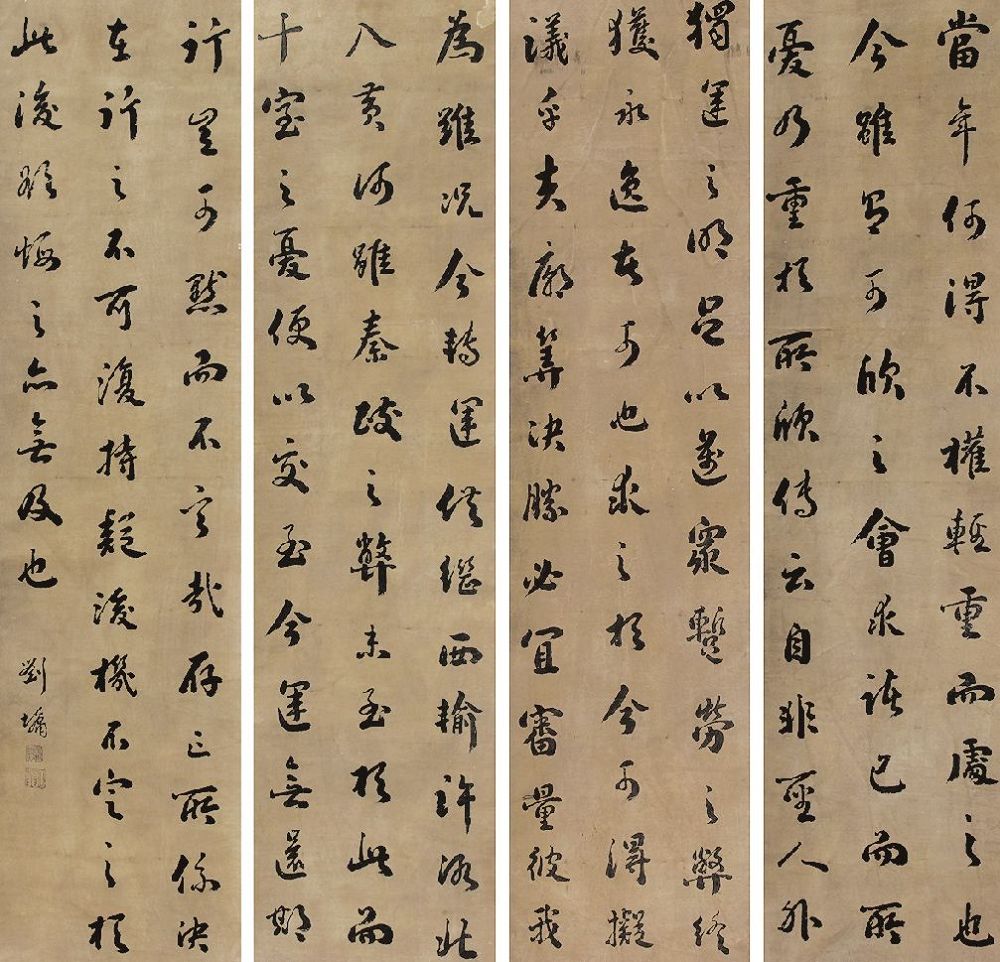 當年何得不權輕重而處之也
今雖有可欣之會求諸己而所
憂乃重於所欣傳云自非聖人外
獨運之明足以邁眾蹔勞之弊終
獲永逸者可也求之於今可得擬
議乎夫廟算決勝必宜審量彼我
為雖況今轉運供繼西輸許洛北
入黃河雖秦政之弊未至於此而
十室之憂便以交至今運無還期
行豈可默而不言哉存亡所係決
在行之不可復持疑後機不定之於
此後欲悔之亦無及也
劉墉